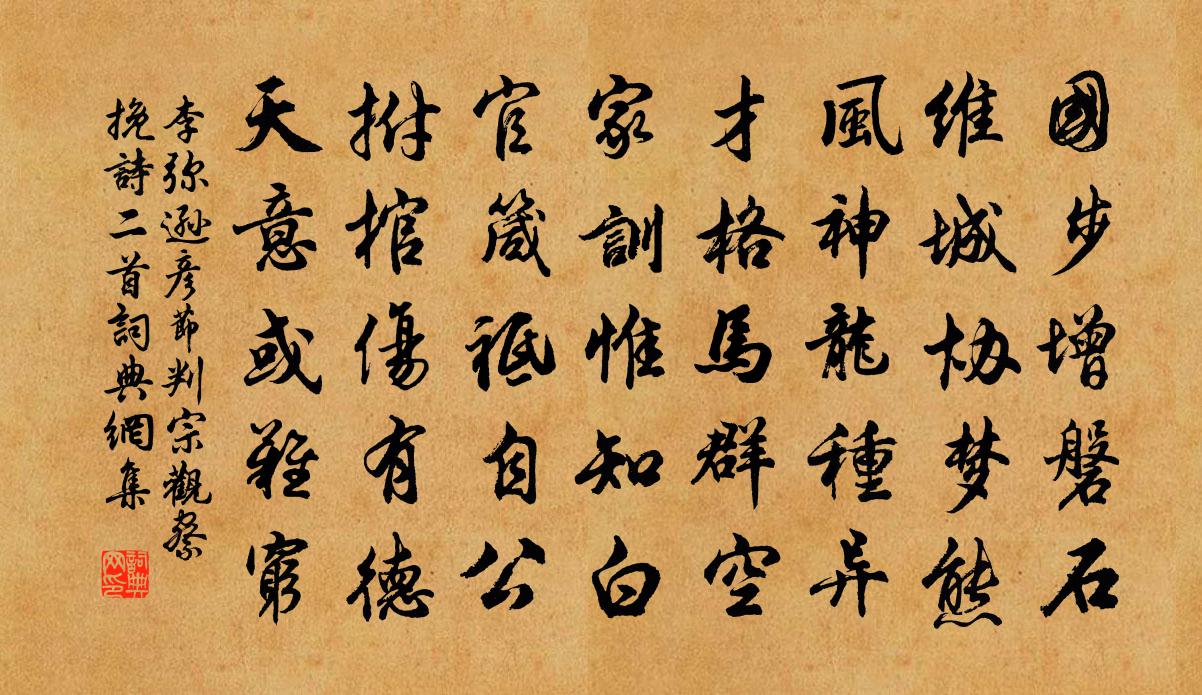 國步增磐石
維城協梦熊
風神龍種异
才格馬群空
家訓惟知白
官箴祗自公
拊棺傷有德
天意或難窮
李弥遜彦節判宗觀察
挽詩二首詞典網集
詞典网印